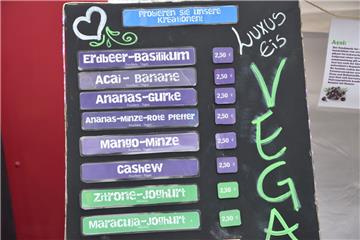 Probieren Sie unsere
Kreationen!
Luxus
eis
Erdbeer-Basilikum 2,50
Acai - Banane 2,50
Ananas-Gurke 2,50
Ananas-Minze-Rote Pfeffer 2,50
Mango-Minze 2,50
Cashew 2,50
Zitrone-Joghurt 2,50
Maracuja-Joghurt 2,50
VEGA
Acai: